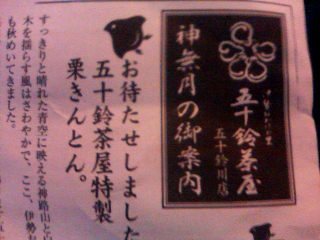 五十鈴茶屋
五十鈴川店
神無月の御案内
お待たせしました
五十鈴茶屋特製
栗きんとん。
すっきりと晴れた青空に映える神路山と
木を揺らす風はさわやかで、ここ、伊勢
も秋めいてきました。